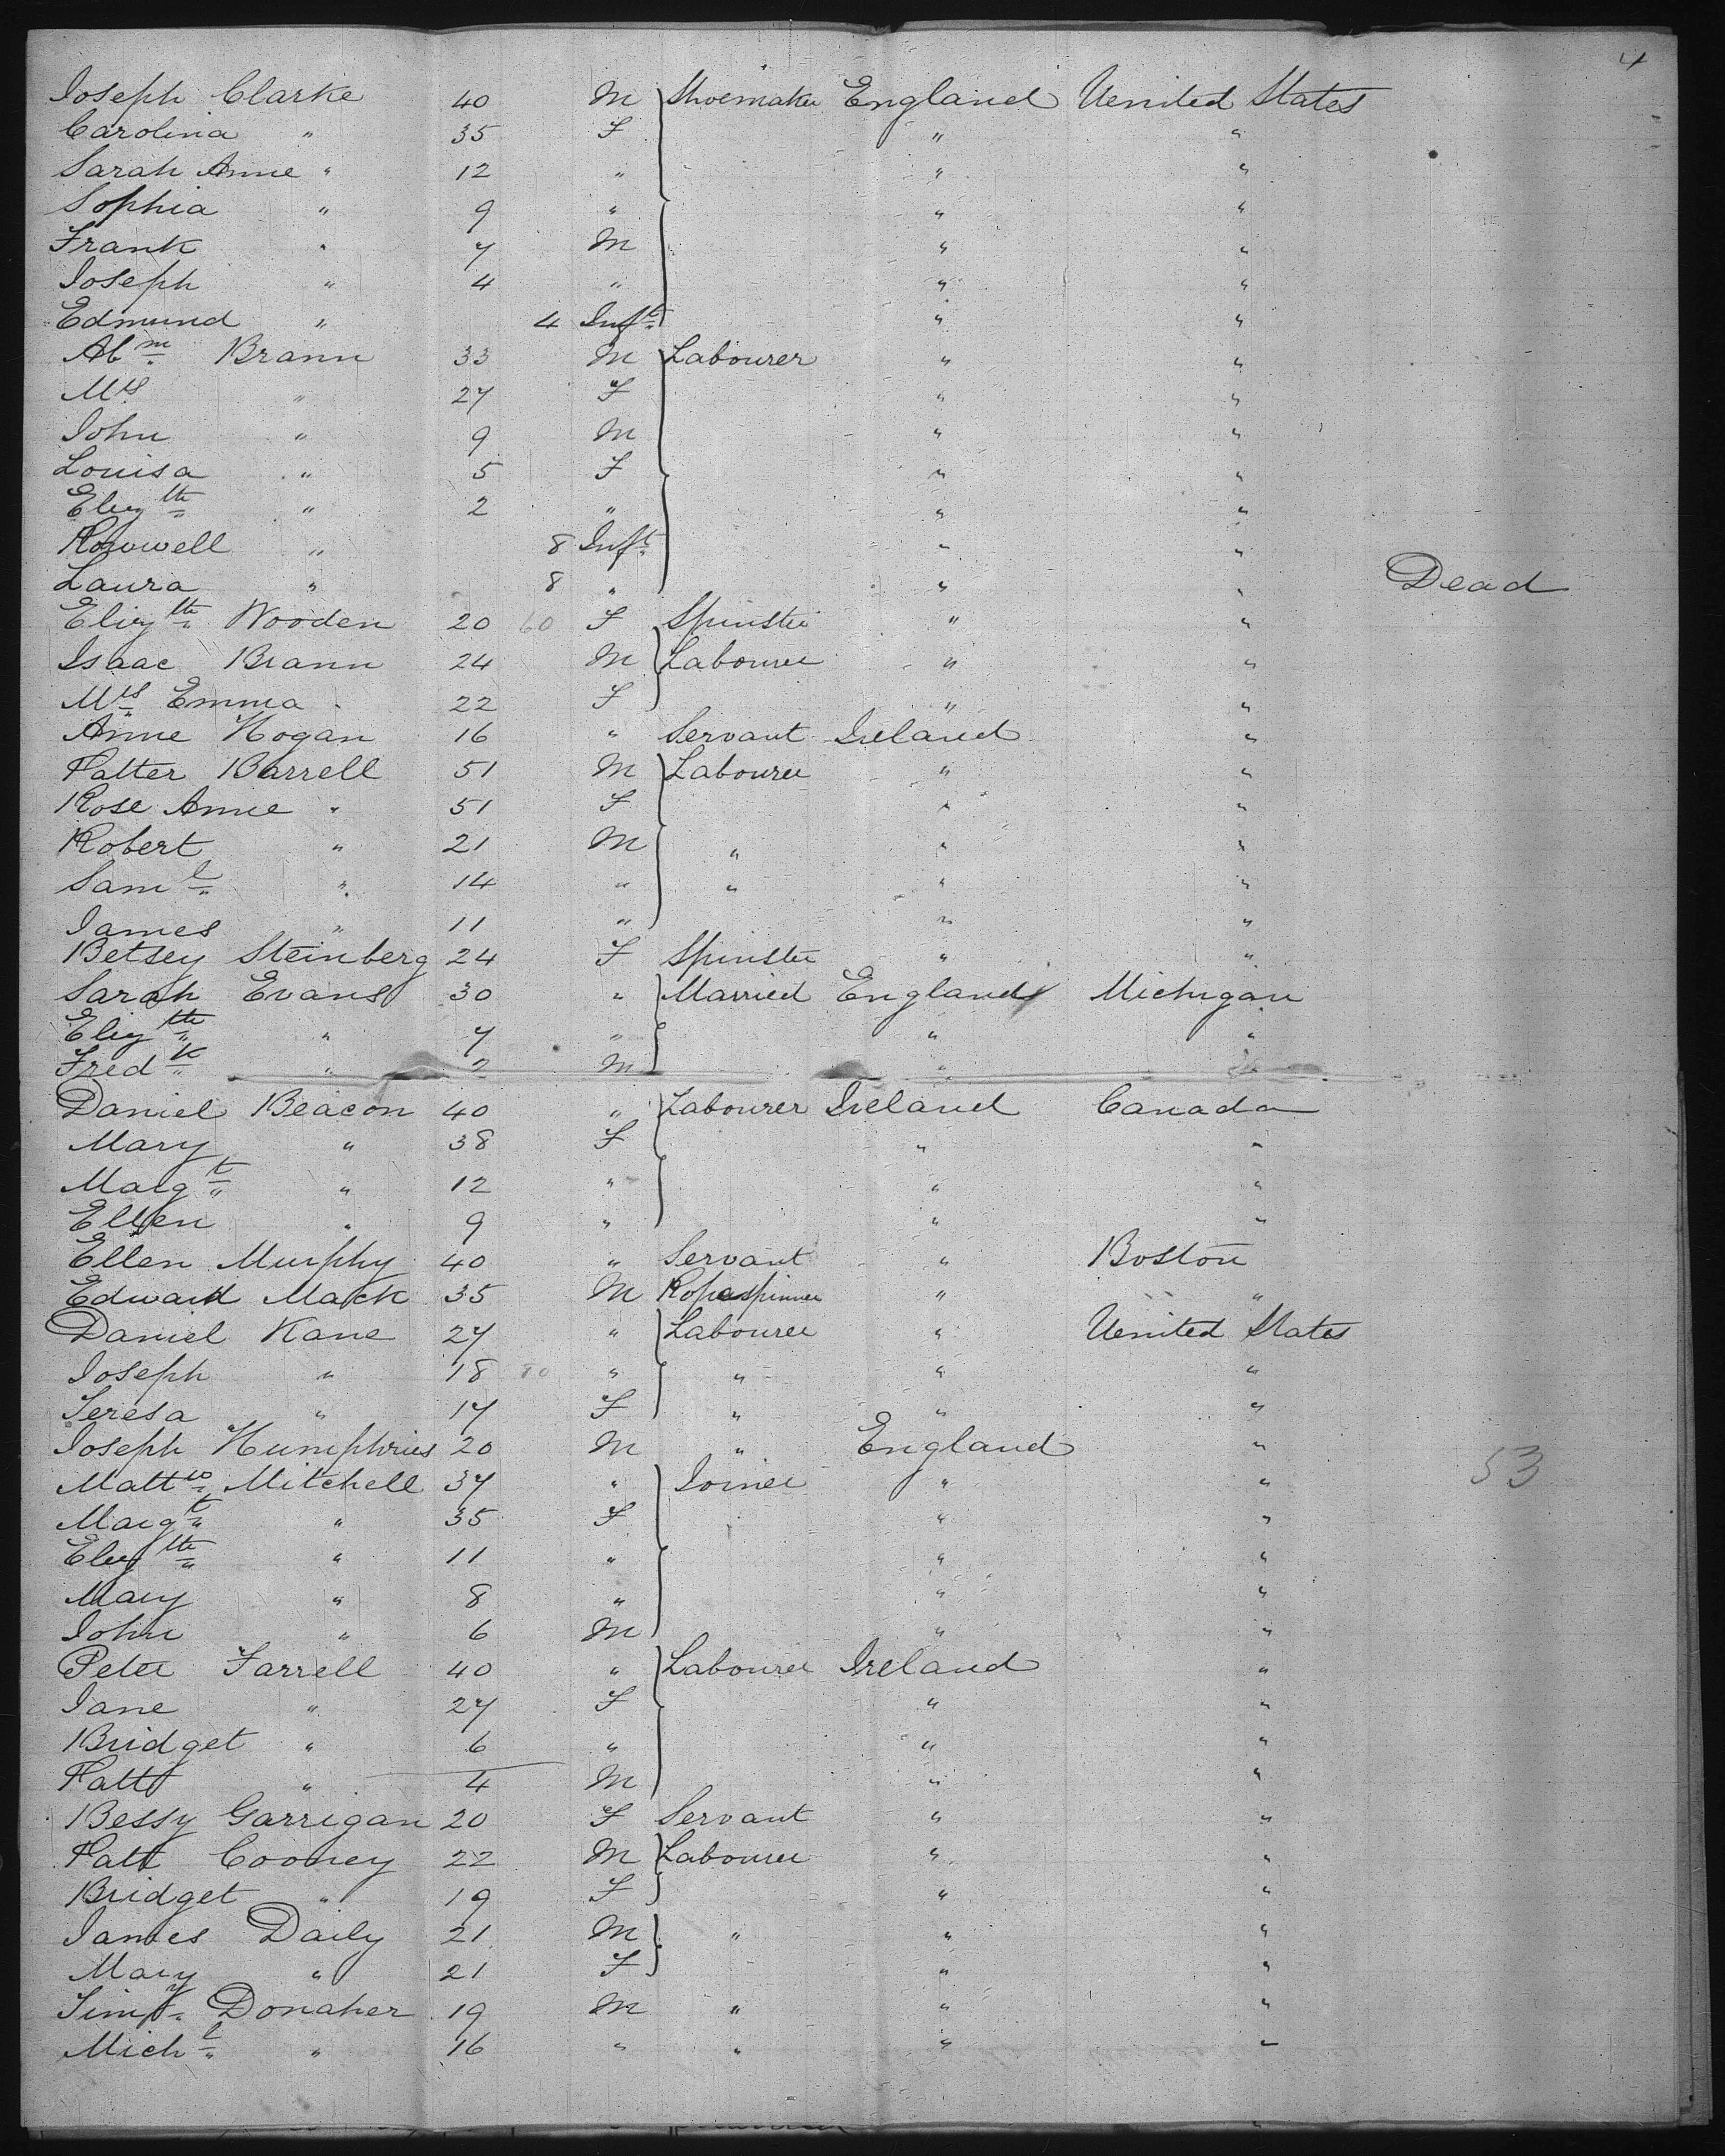 4
Joseph Clarke 40 M Shoemaker England Uenited States
Carolina " 35 F " "
Sarah Anne " 12 " " "
Sophia " 9 " " "
Frank " 7 M " "
Joseph " 4 " " "
Edmund " 4 Inft " "
Abm Brann 33 M Labourer " "
Mrs " 27 F " "
John " 9 M " "
Louisa " 5 F " "
Elizth " 2 " " "
" 8 Inft " "
Laura " 8 " " " Dead
Elizth Wooden 20 60 F Spinster " "
Isaac Brann 24 M Labourer " "
Mrs Emma " 22 F " "
Anne Hogan 16 " Servant Ireland "
Patter Barrell 51 M Labourer " "
Rose Anne " 51 F " "
Robert " 21 M " " "
Saml " 14 " " " "
James " 11 " " "
Betsey Steinberg 24 F Spinster " "
Sarah Evans 30 " Married England Michigan
Elizth " 7 " " "
Fredk " 2 M " "
Daniel Beacon 40 " Labourer Ireland Canada
Mary " 38 F " "
Margt " 12 " " "
Ellen " 9 " " "
Ellen Murphy 40 " Servant " Boston
Edward Mack 35 M Ropespinner " "
Daniel Kane 27 " Labourer " Uenited States
Joseph " 18 80 " " " "
Teresa " 17 F " " "
Joseph Humphries 20 M " England "
Mattw Mitchell 37 " Joiner " " 53
Margt " 35 F " "
Elizth " 11 " " "
Mary " 8 " " "
John " 6 M " "
Peter Farrell 40 " Labourer Ireland "
Jane " 27 F " "
Bridget " 6 " " "
Patt " 4 M " "
Bessy Garrigan 20 F Servant " "
Patt Cooney 22 M Labourer " "
Bridget " 19 F " "
James Daily 21 M " " "
Mary " 21 F " "
Timy Donaher 19 M " " "
Michl " 16 " " " "